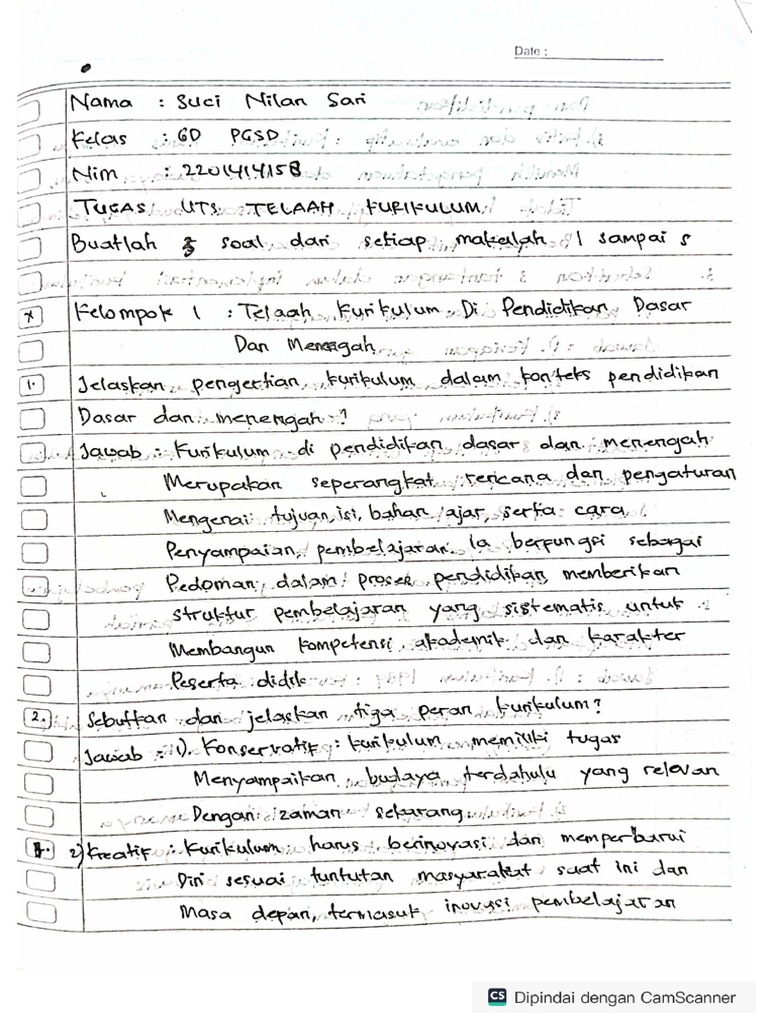 Date :
Nama : Suci Nilan Sari
Kelas : 6D PGSD
Nim : 2201414158
TUGAS UTS TELAAH KURIKULUM
Buatlah 3 soal dari setiap makalah 1 sampai 5
x Kelompok 1 : Telaah Kurikulum Di Pendidikan Dasar
Dan Menengah
1. Jelaskan pengertian kurikulum dalam konteks pendidikan
Dasar dan menengah ?
Jawab : Kurikulum di pendidikan dasar dan menengah
Merupakan seperangkat rencana dan pengaturan
Mengenai tujuan, isi, bahan ajar, serta cara
Penyampaian pembelajaran. Ia berfungsi sebagai
Pedoman dalam proses pendidikan, memberikan
struktur pembelajaran yang sistematis untuk
Membangun kompetensi akademik dan karakter
Peserta didik
2. Sebutkan dan jelaskan tiga peran kurikulum?
Jawab : 1). Konservatif : kurikulum memiliki tugas
Menyampaikan budaya terdahulu yang relevan
Dengan zaman sekarang
2) Kreatif : Kurikulum harus berinovasi dan memperbarui
Diri sesuai tuntutan masyarakat saat ini dan
Masa depan, termasuk inovasi pembelajaran
CS Dipindai dengan CamScanner